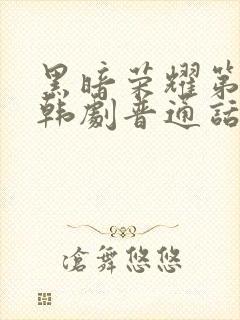 黑暗荣耀第
韩劇普通话
滄舞悠悠